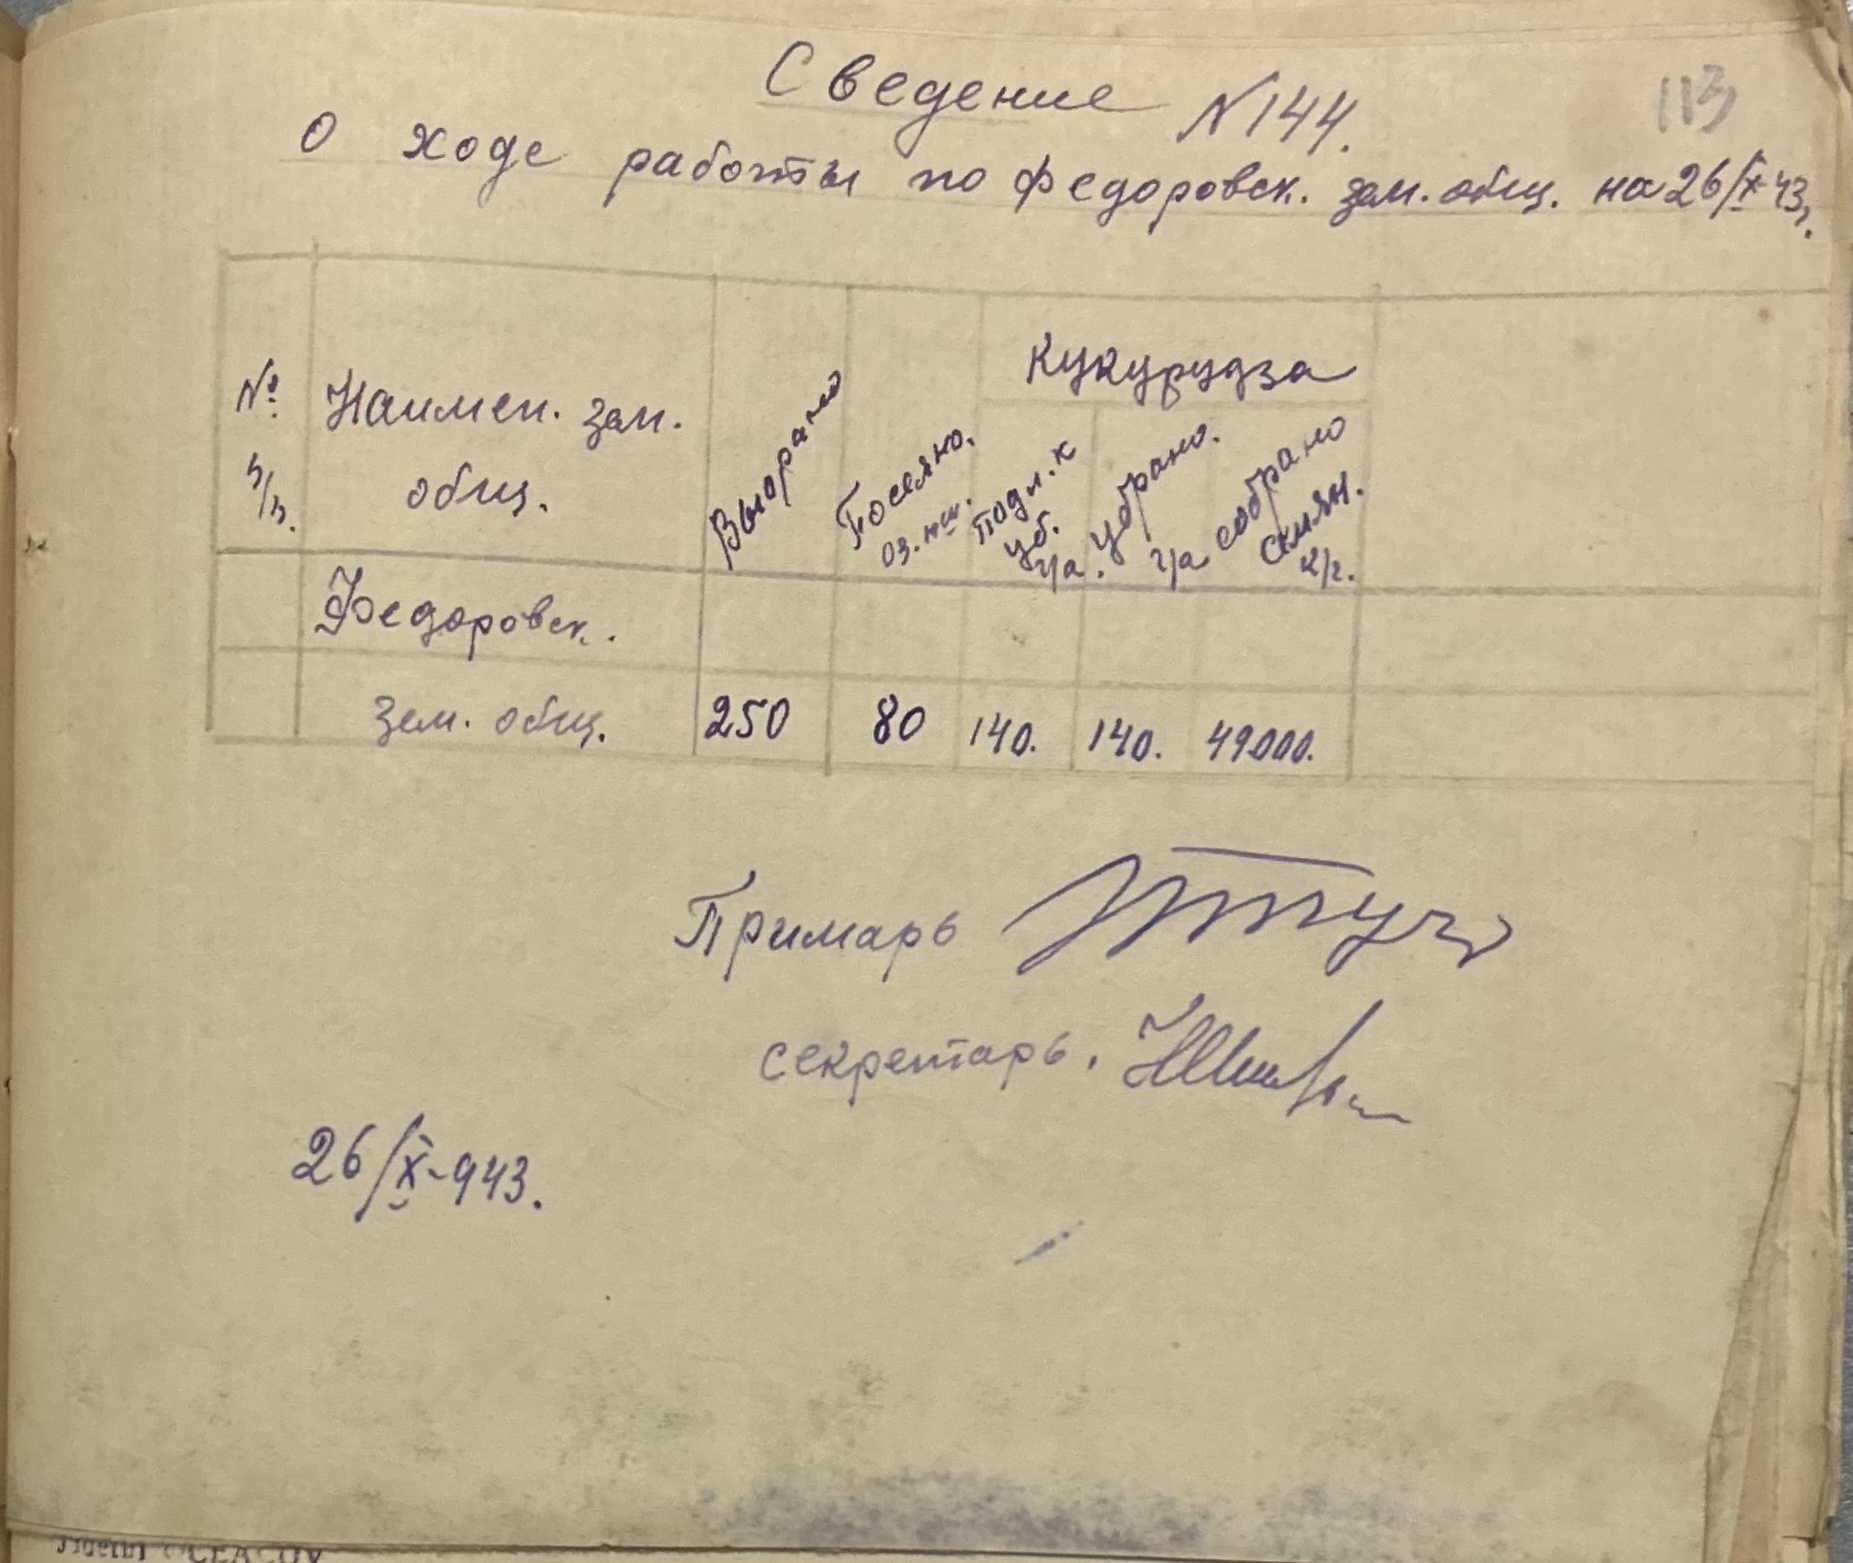 113
Сведение N144.
О ходе работы по Федоровск. зем. общ. на 26/X-43.
№ п/п.
Наимен. зем.
общ.
Выорано
Посеяно.
оз. пш.
Кукурудза
Подл. к
уб.
г/а.
убрано.
г/а
собрано
семян.
к/г.
Федоровск.
зем. общ. 250 80 140. 140. 49000.
Примарь
секретарь.
26/X-943.
OCEACOV